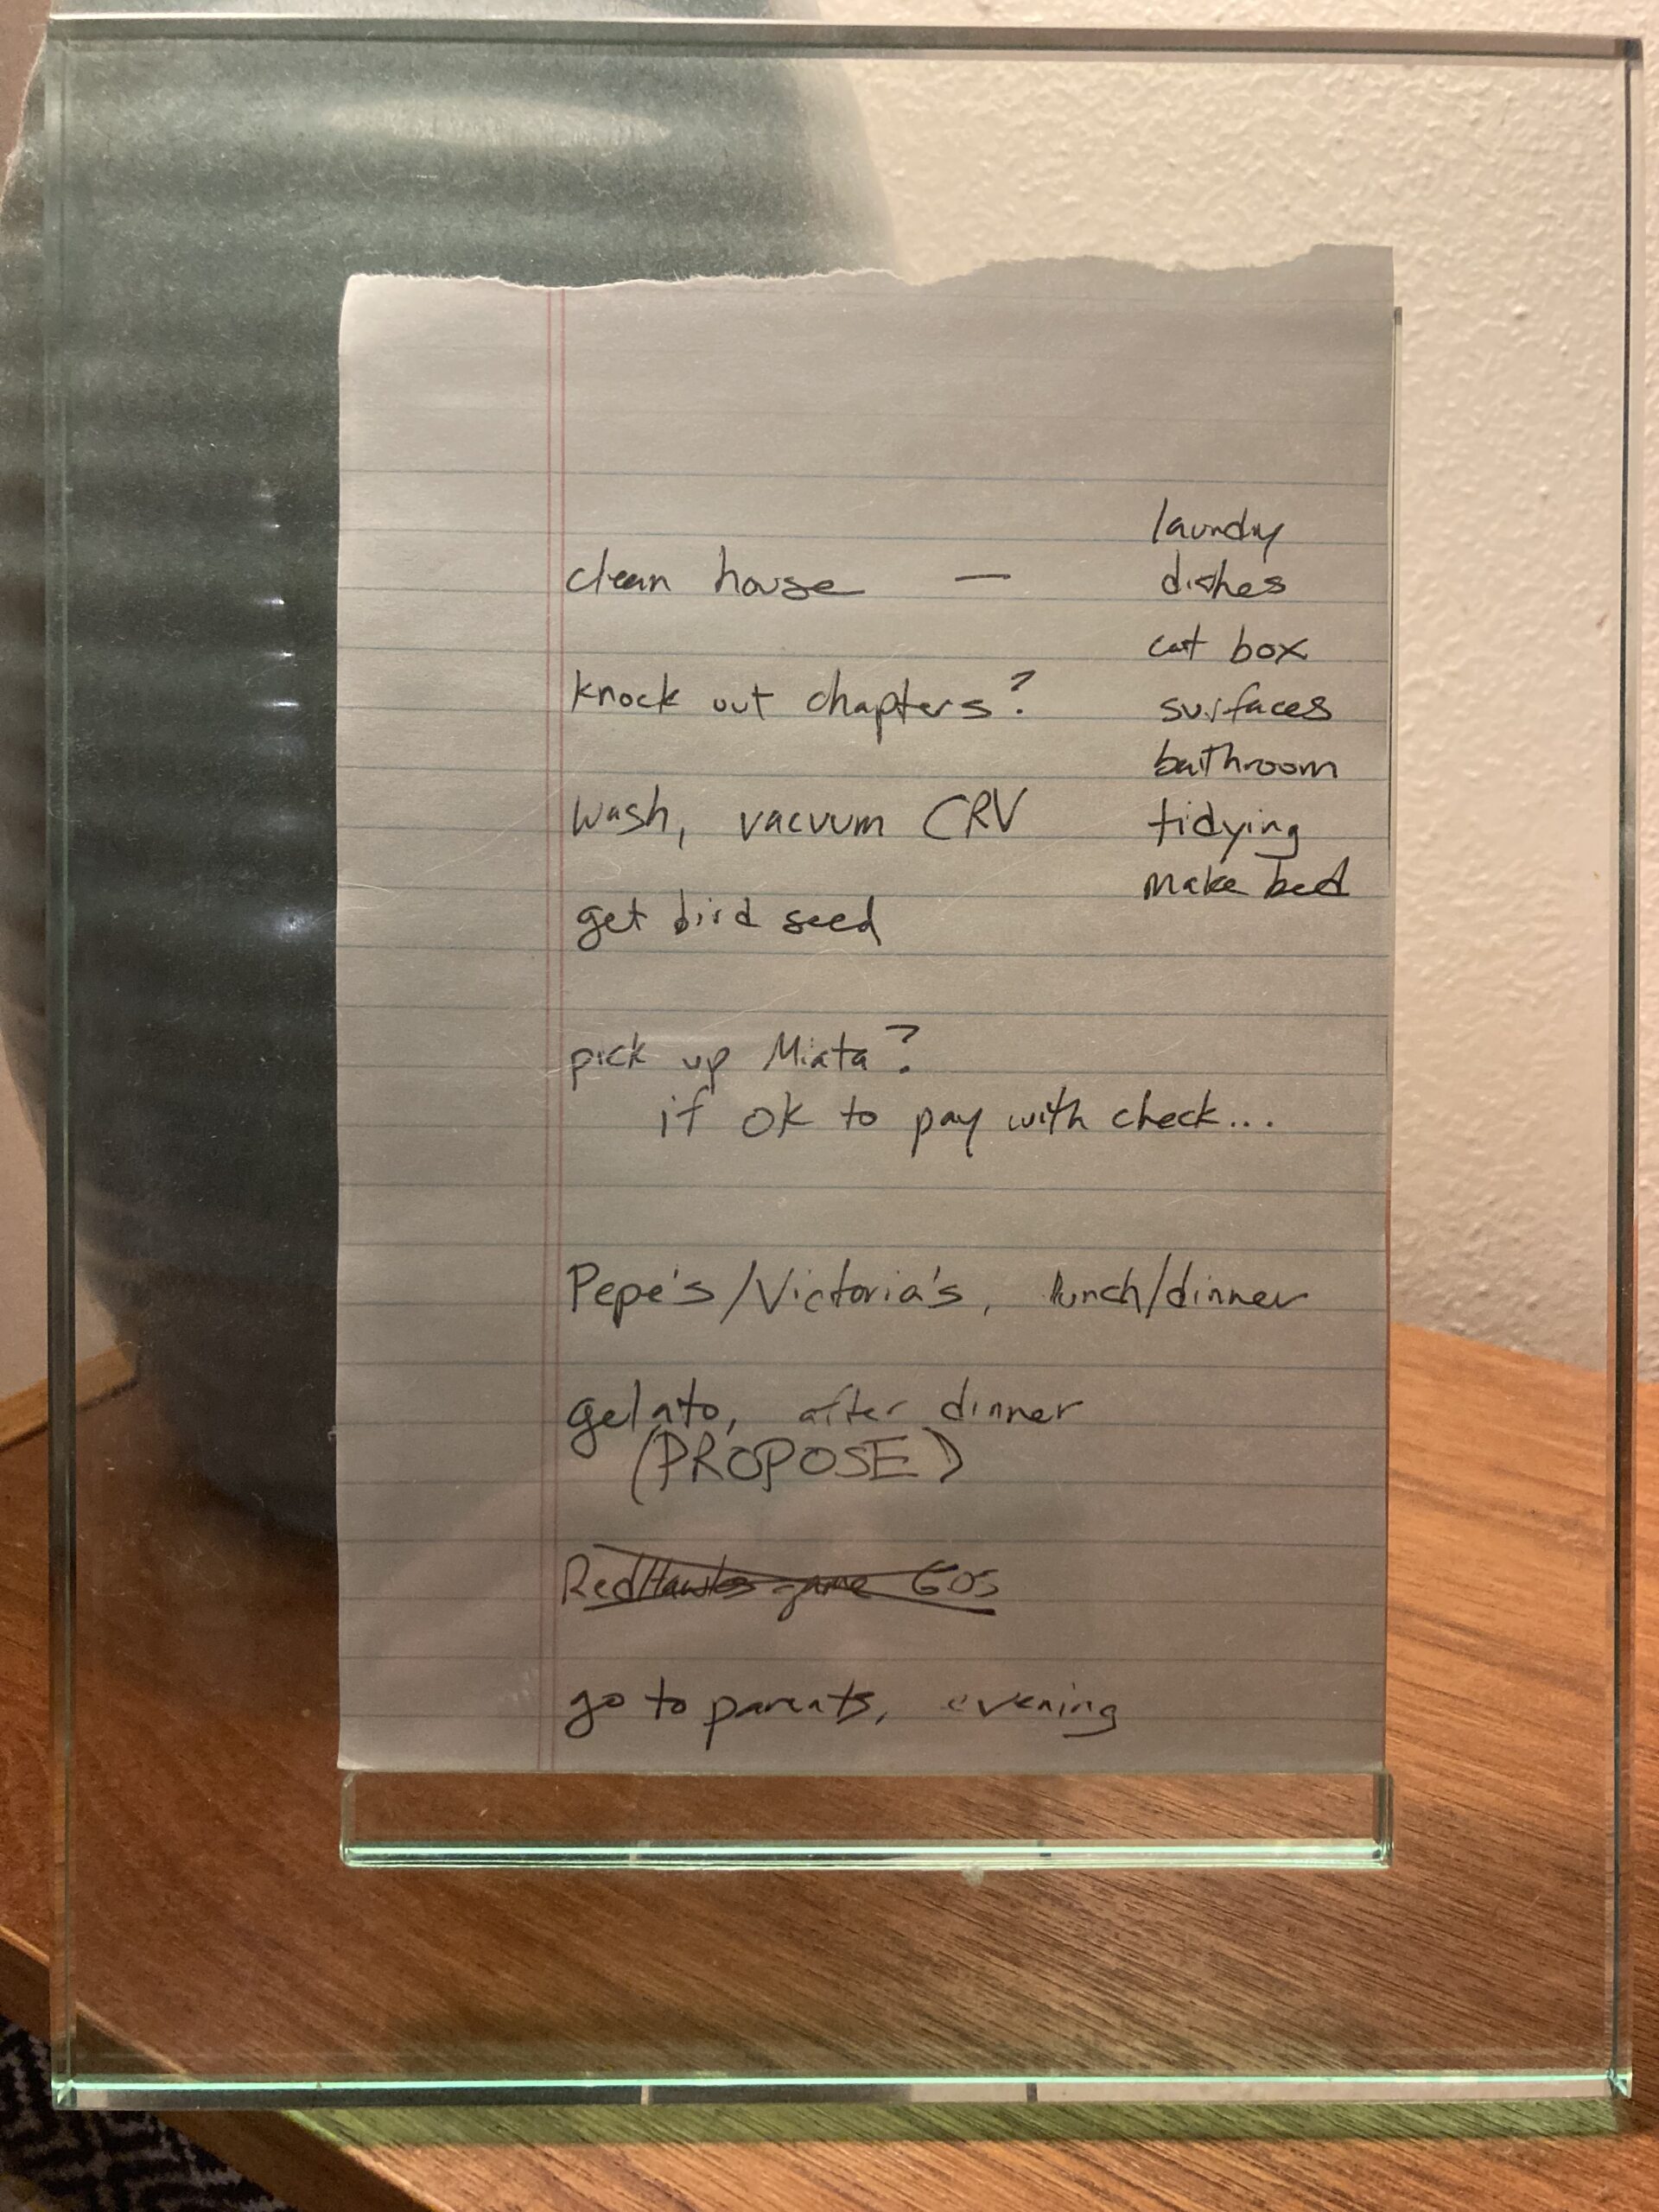 laundry
clean house — dishes
cat box
knock out chapters? surfaces
bathroom
wash, vacuum CRV tidying
make bed
get bird seed
pick up Miata?
if ok to pay with check...
Pepe's/Victoria's, lunch/dinner
gelato, after dinner
(PROPOSE)
RedHawks game
go to parents, evening